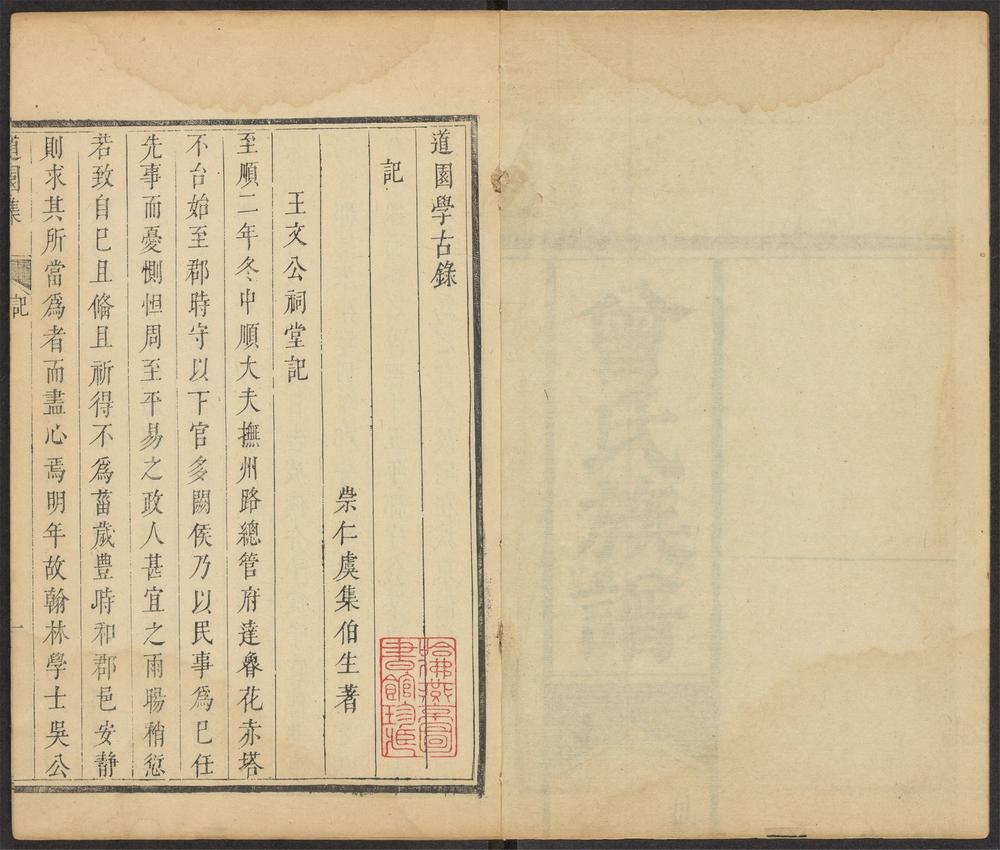 道園學古錄
記
崇仁虞集伯生著
王文公祠堂記
至順二年冬中順大夫撫州路總管府達魯花赤塔
不台始至郡時守以下官多闕侯乃以民事爲已任
先事而憂惻怛周至平易之政人甚宜之雨暘稍愆
若致自已且脩且祈得不爲菑歲豊時和郡邑安靜
則求其所當爲者而盡心焉明年故翰林學士吳公
道園集
記
一
哈佛燕京圖
書館珍藏
曾氏族譜